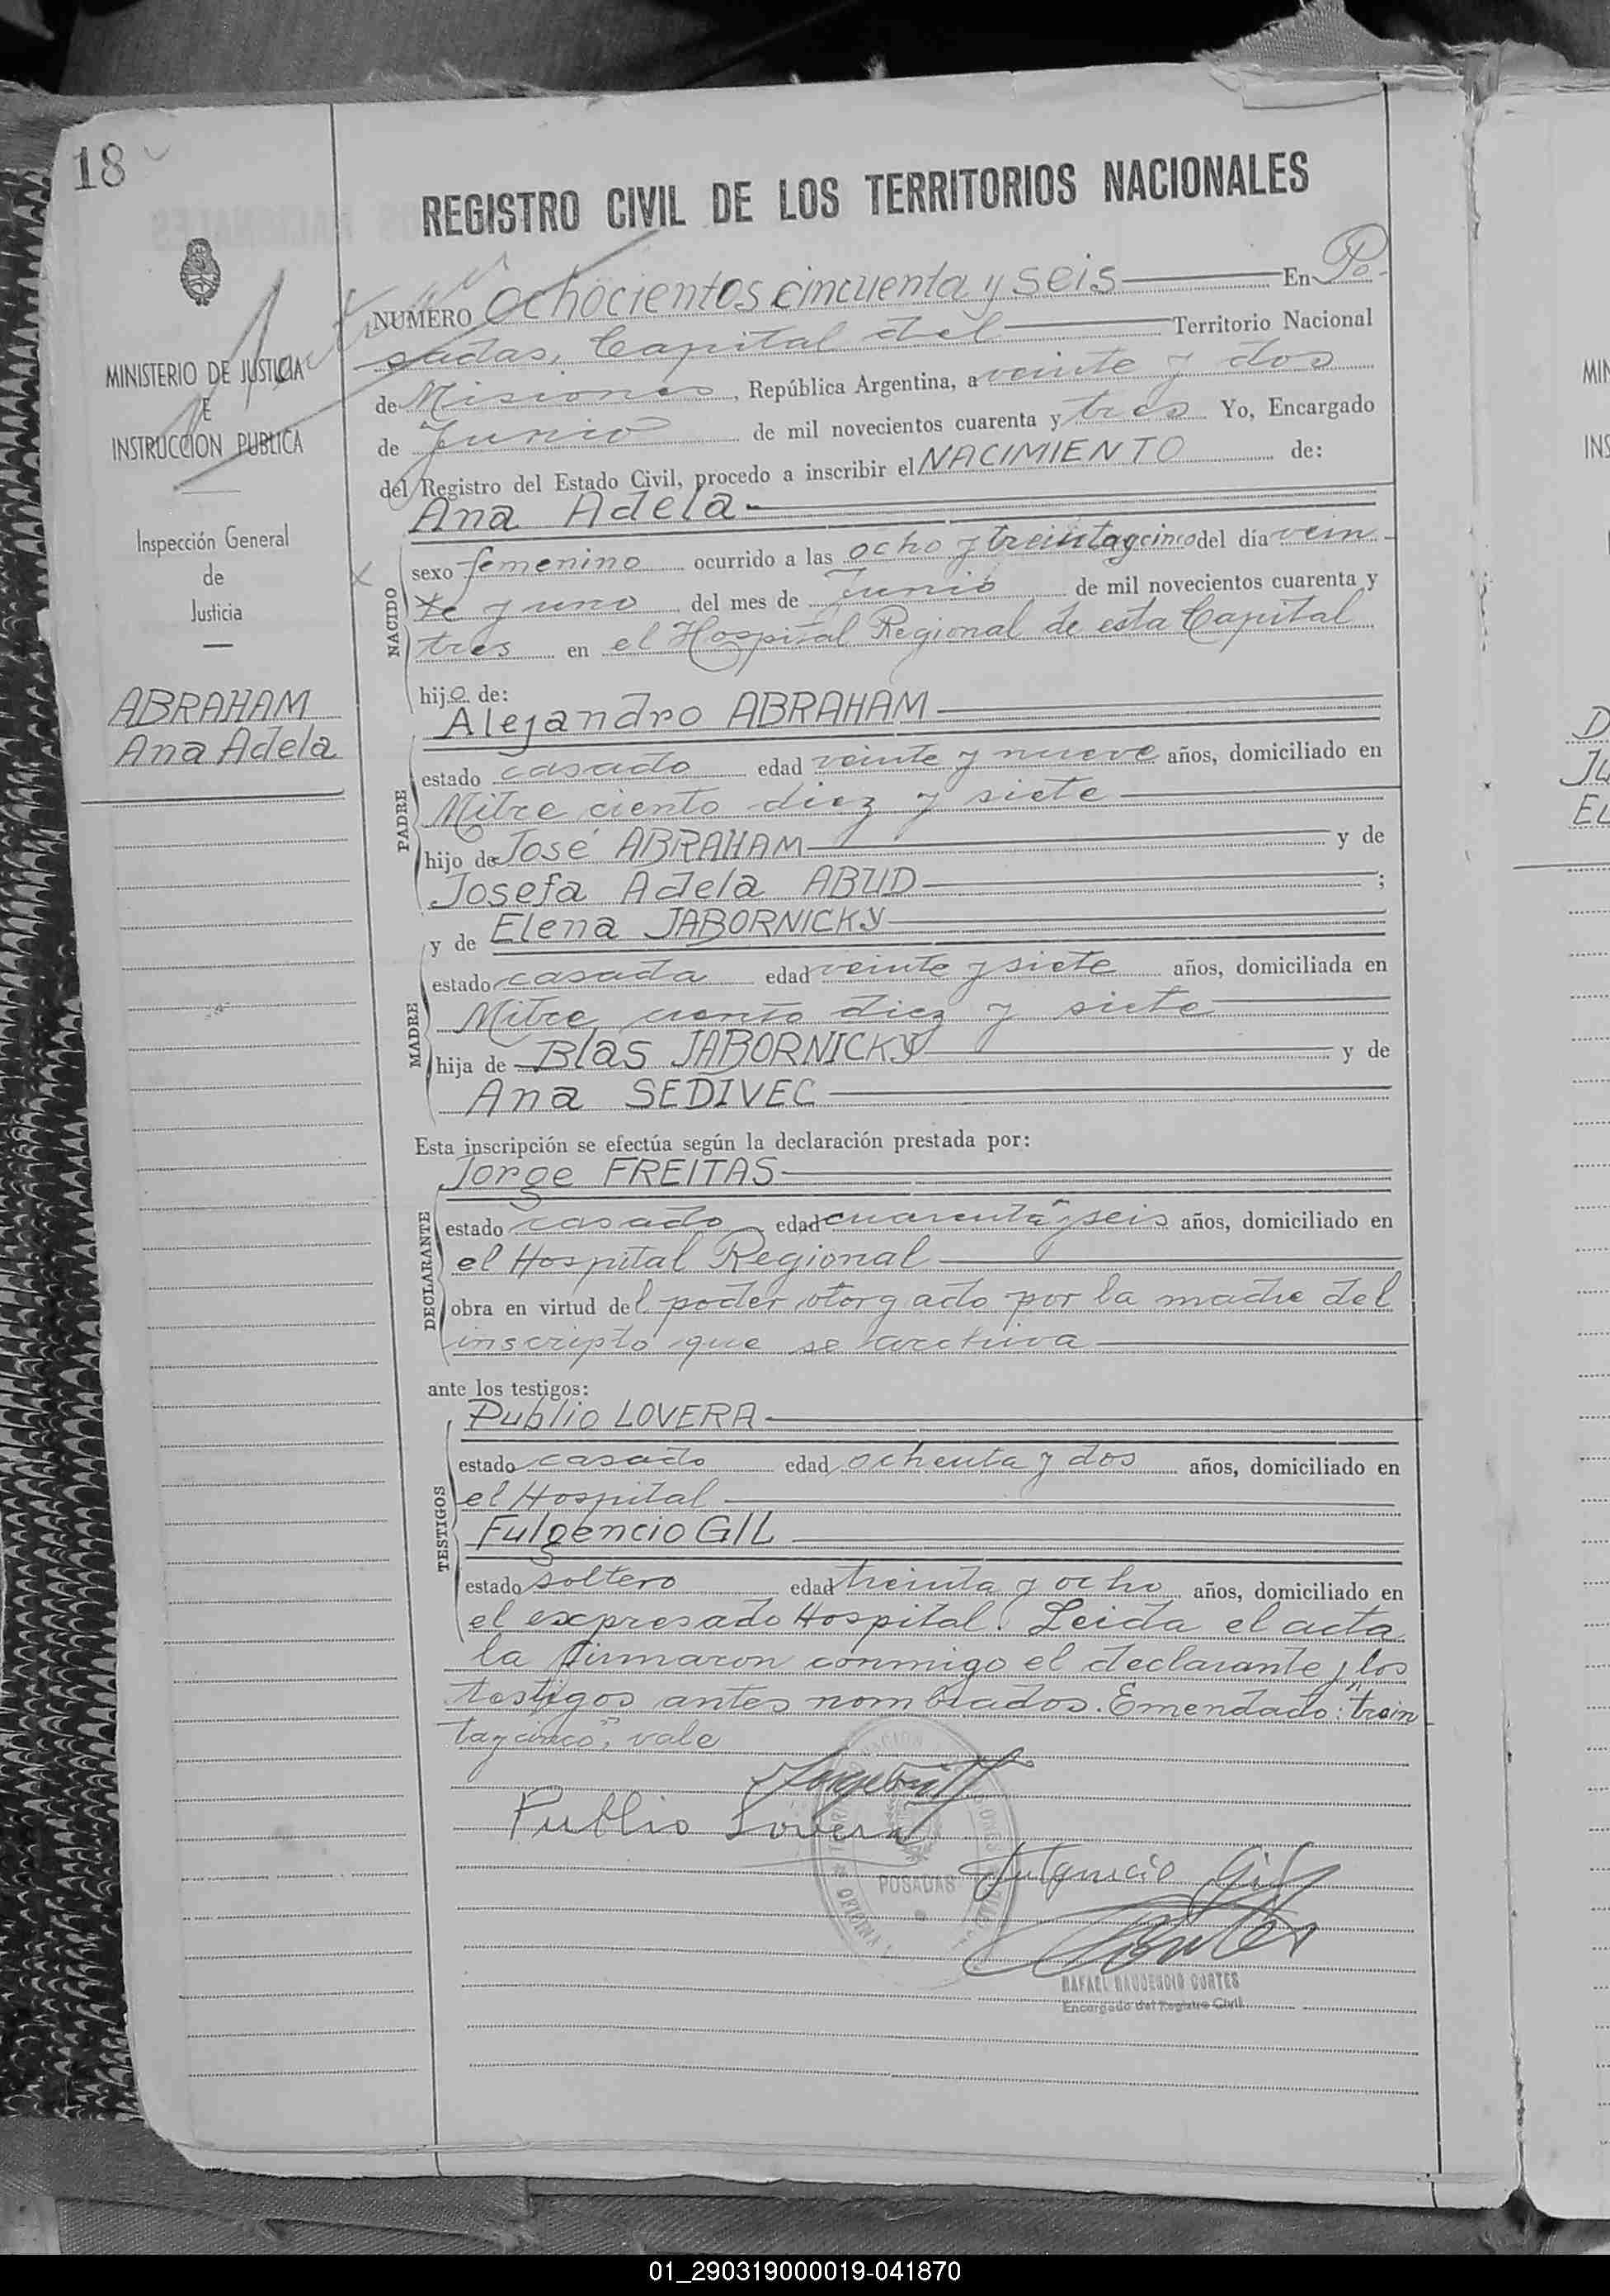 18
REGISTRO CIVIL DE LOS TERRITORIOS NACIONALES
MINISTERIO DE JUSTICIA
E
INSTRUCCION PUBLICA
Inspección General
de
Justicia
ABRAHAM
Ana Adela
NUMERO Ochocientos cincuenta y seis En Po-
sadas, Capital del Territorio Nacional
de Misiones, República Argentina, a veinte y dos
de Junio de mil novecientos cuarenta y tres Yo, Encargado
del Registro del Estado Civil, procedo a inscribir el NACIMIENTO de:
Ana Adela
NACIDO
sexo femenino ocurrido a las ocho y treintaycinco del día vein-
te y uno del mes de Junio de mil novecientos cuarenta y
tres en el Hospital Regional de esta Capital
hijo de:
Alejandro ABRAHAM
PADRE
estado casado edad veinte y nueve años, domiciliado en
Mitre ciento diez y siete
hijo de José ABRAHAM y de
Josefa Adela ABUD ;
y de Elena JABORNICKY
MADRE
estado casada edad veinte y siete años, domiciliada en
Mitre, ciento diez y siete
hija de Blas JABORNICKY y de
Ana SEDIVEC
Esta inscripción se efectúa según la declaración prestada por:
Jorge FREITAS
DECLARANTE
estado casado edad cuarenta y seis años, domiciliado en
el Hospital Regional
obra en virtud del poder otorgado por la madre del
inscripto que se archiva
ante los testigos:
Publio LOVERA
TESTIGOS
estado casado edad ochenta y dos años, domiciliado en
el Hospital
Fulgencio GIL
estado soltero edad treinta y ocho años, domiciliado en
el expresado Hospital. Leida el acta
la firmaron conmigo el declarante y los
testigos antes nombrados. Emendado: "trein
taycinco", vale
Publio Lovera
Fulgencio Gil
POSADAS
RAFAEL GAUDENCIO CORTES
Encargado del Registro Civil
MIN
INS
D
Ju
EL
01_290319000019-041870